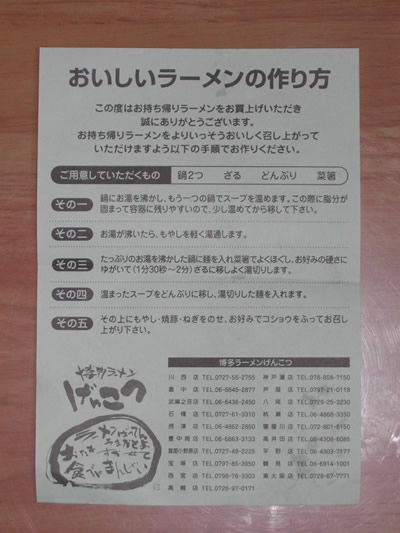 おいしいラーメンの作り方
この度はお持ち帰りラーメンをお買上げいただき
誠にありがとうございます。
お持ち帰りラーメンをよりいっそうおいしく召し上がって
いただけますよう以下の手順でお作りください。
ご用意していただくもの 鍋2つ ざる どんぶり 菜箸
その一 鍋にお湯を沸かし、もう一つの鍋でスープを温めます。この際に脂分が
固まって容器に残りやすいので、少し温めてから移して下さい。
その二 お湯が沸いたら、もやしを軽く湯通します。
その三 たっぷりのお湯を沸かした鍋に麺を入れ菜箸でよくほぐし、お好みの硬さに
ゆがいて(1分30秒〜2分)ざるに移しよく湯切りします。
その四 温まったスープをどんぶりに移し、湯切りした麺を入れます。
その五 その上にもやし・焼豚・ねぎをのせ、お好みでコショウをふってお召し
上がり下さい。
博多ラーメン
げんこつ
博多ラーメンげんこつ
川西店 TEL.0727-55-2755 神戸灘店 TEL.078-858-7150
豊中店 TEL.06-6845-2877 芦屋店 TEL.0797-21-0118
武庫之荘店 TEL.06-6436-2450 八尾店 TEL.0729-25-3230
石橋店 TEL.0727-61-3310 杭瀬店 TEL.06-4868-3350
摂津店 TEL.06-4862-2850 寝屋川店 TEL.072-801-5150
豊中南店 TEL.06-6863-3133 高井田店 TEL.06-4308-6085
箕面小野原店 TEL.0727-49-5150 平野店 TEL.06-4303-7177
宝塚店 TEL.0797-85-3950 鶴見店 TEL.06-6914-1001
西宮店 TEL.0798-76-3303 東大阪店 TEL.0729-67-7771
高槻店 TEL.0726-97-0171